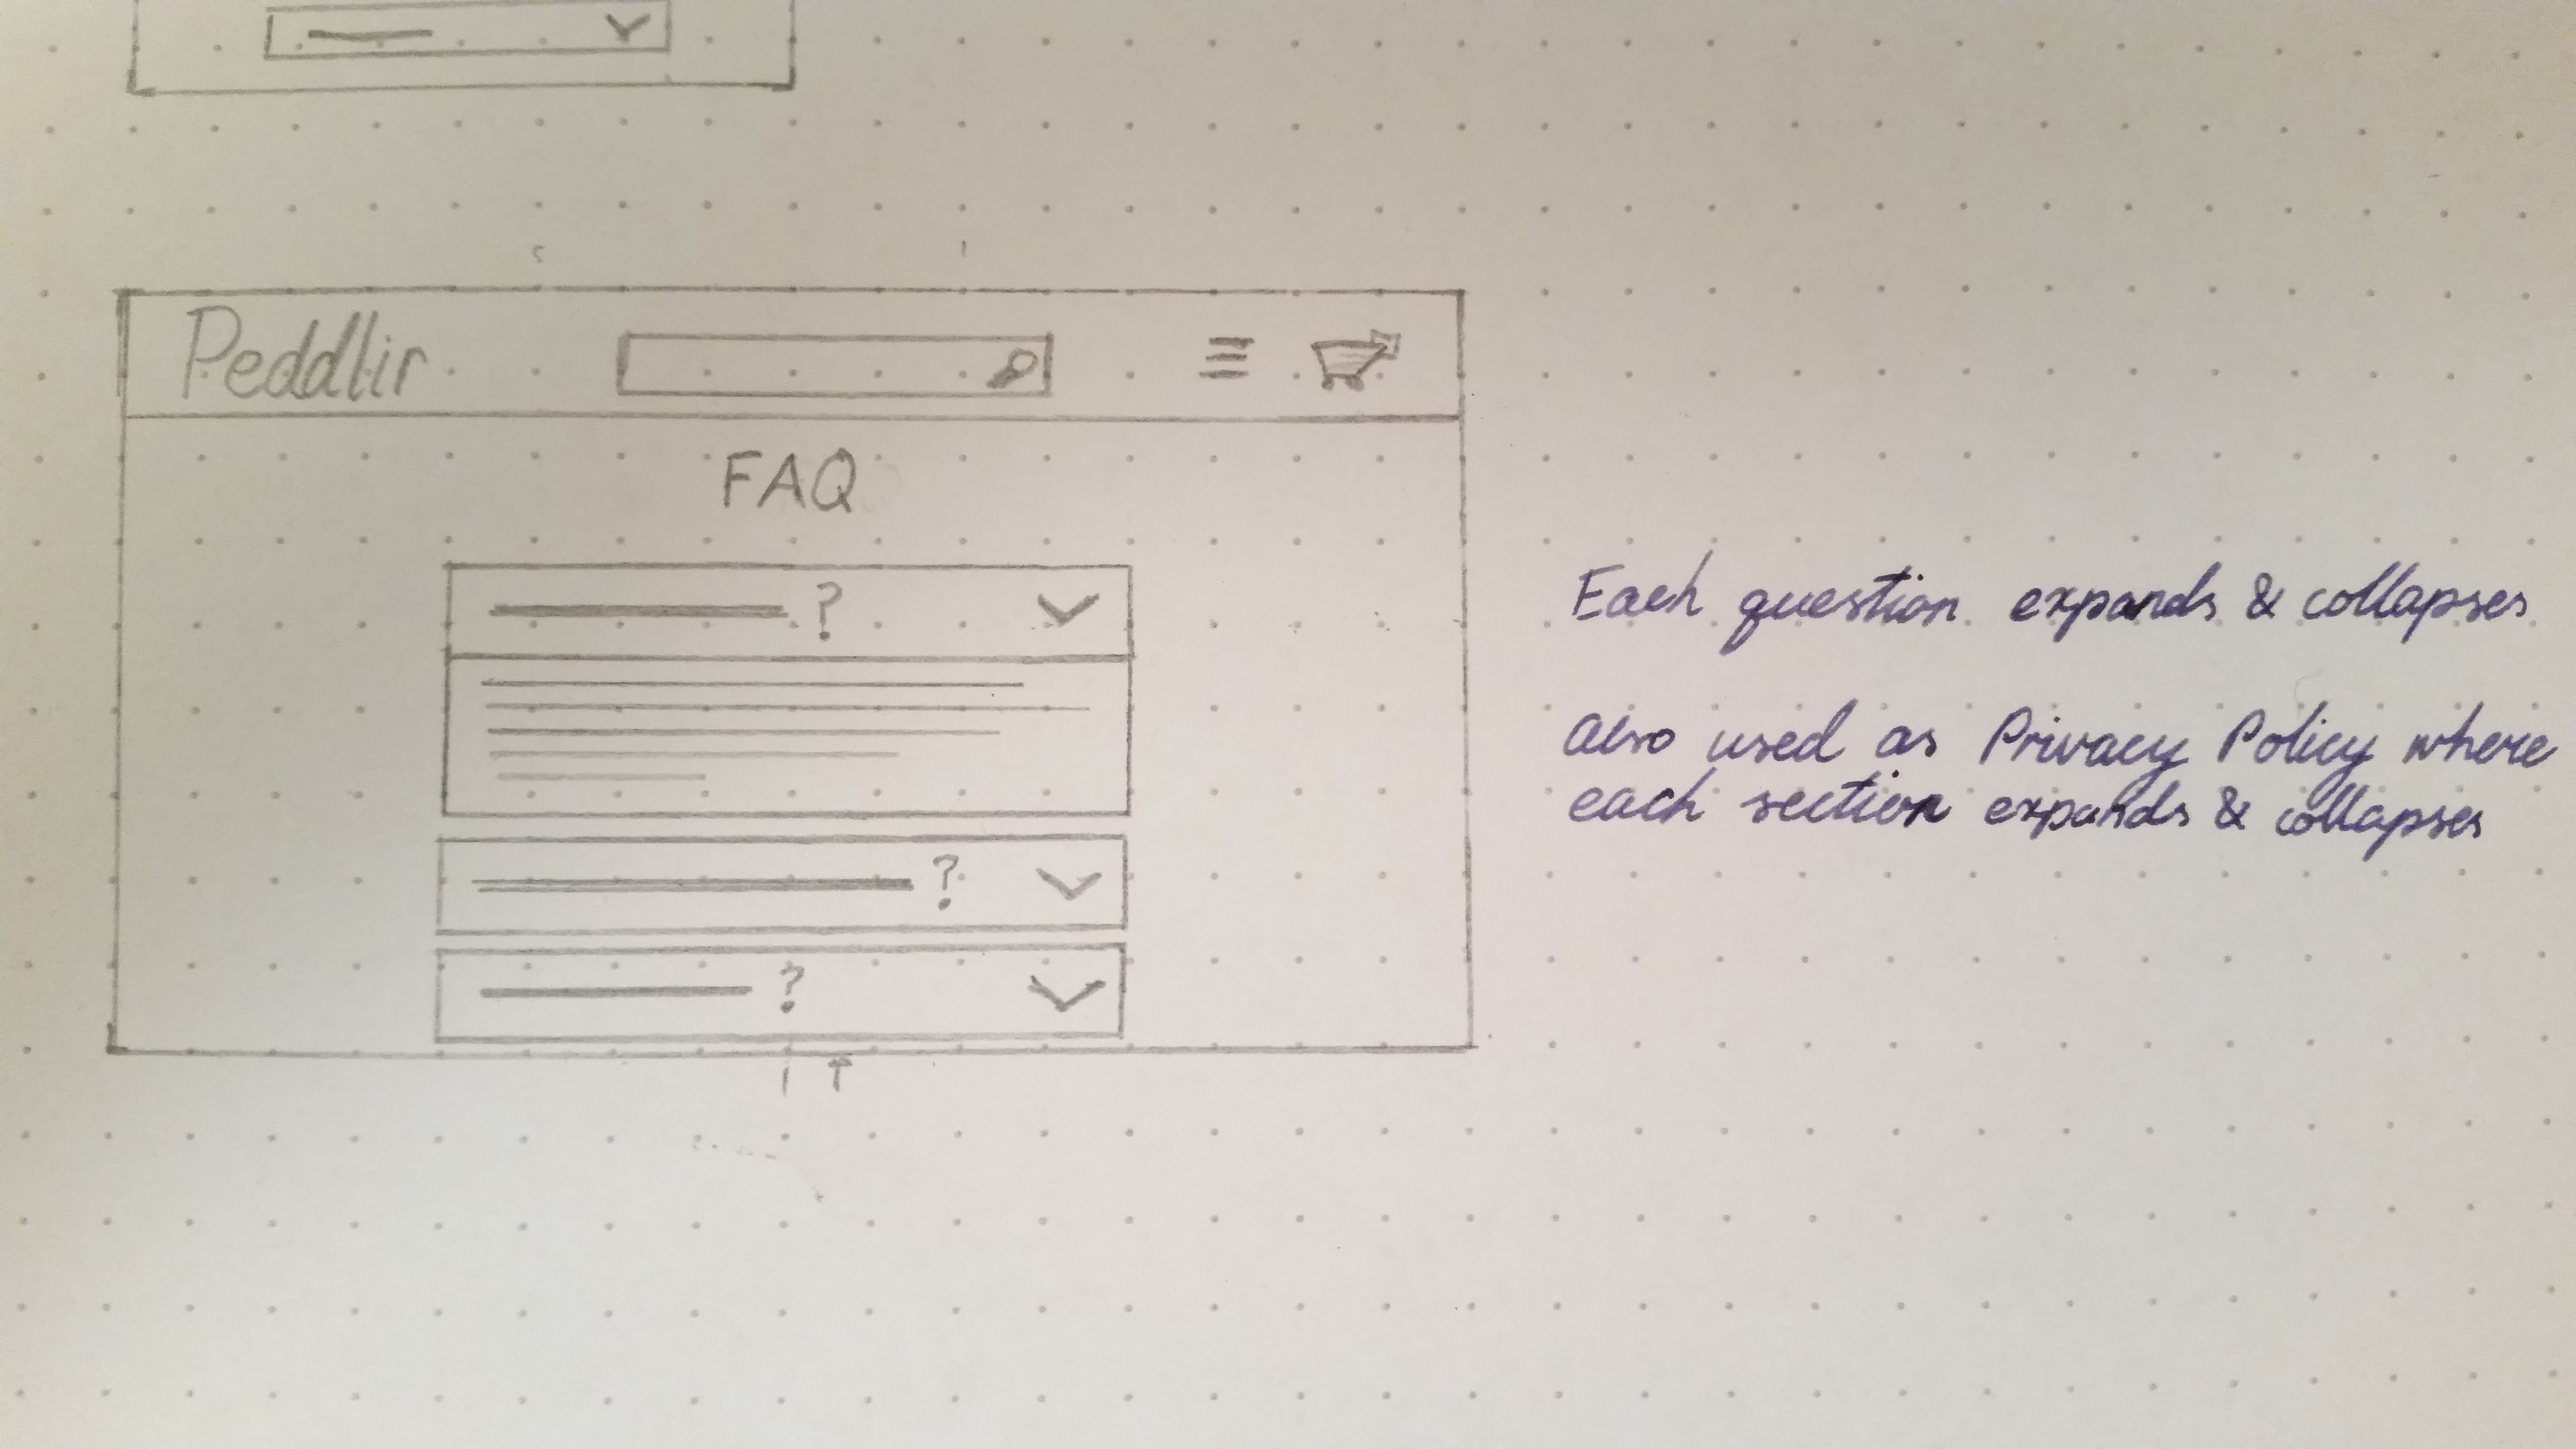 Peddlir
FAQ
?
?
?
Each question expands & collapses
Also used as Privacy Policy where
each section expands & collapses